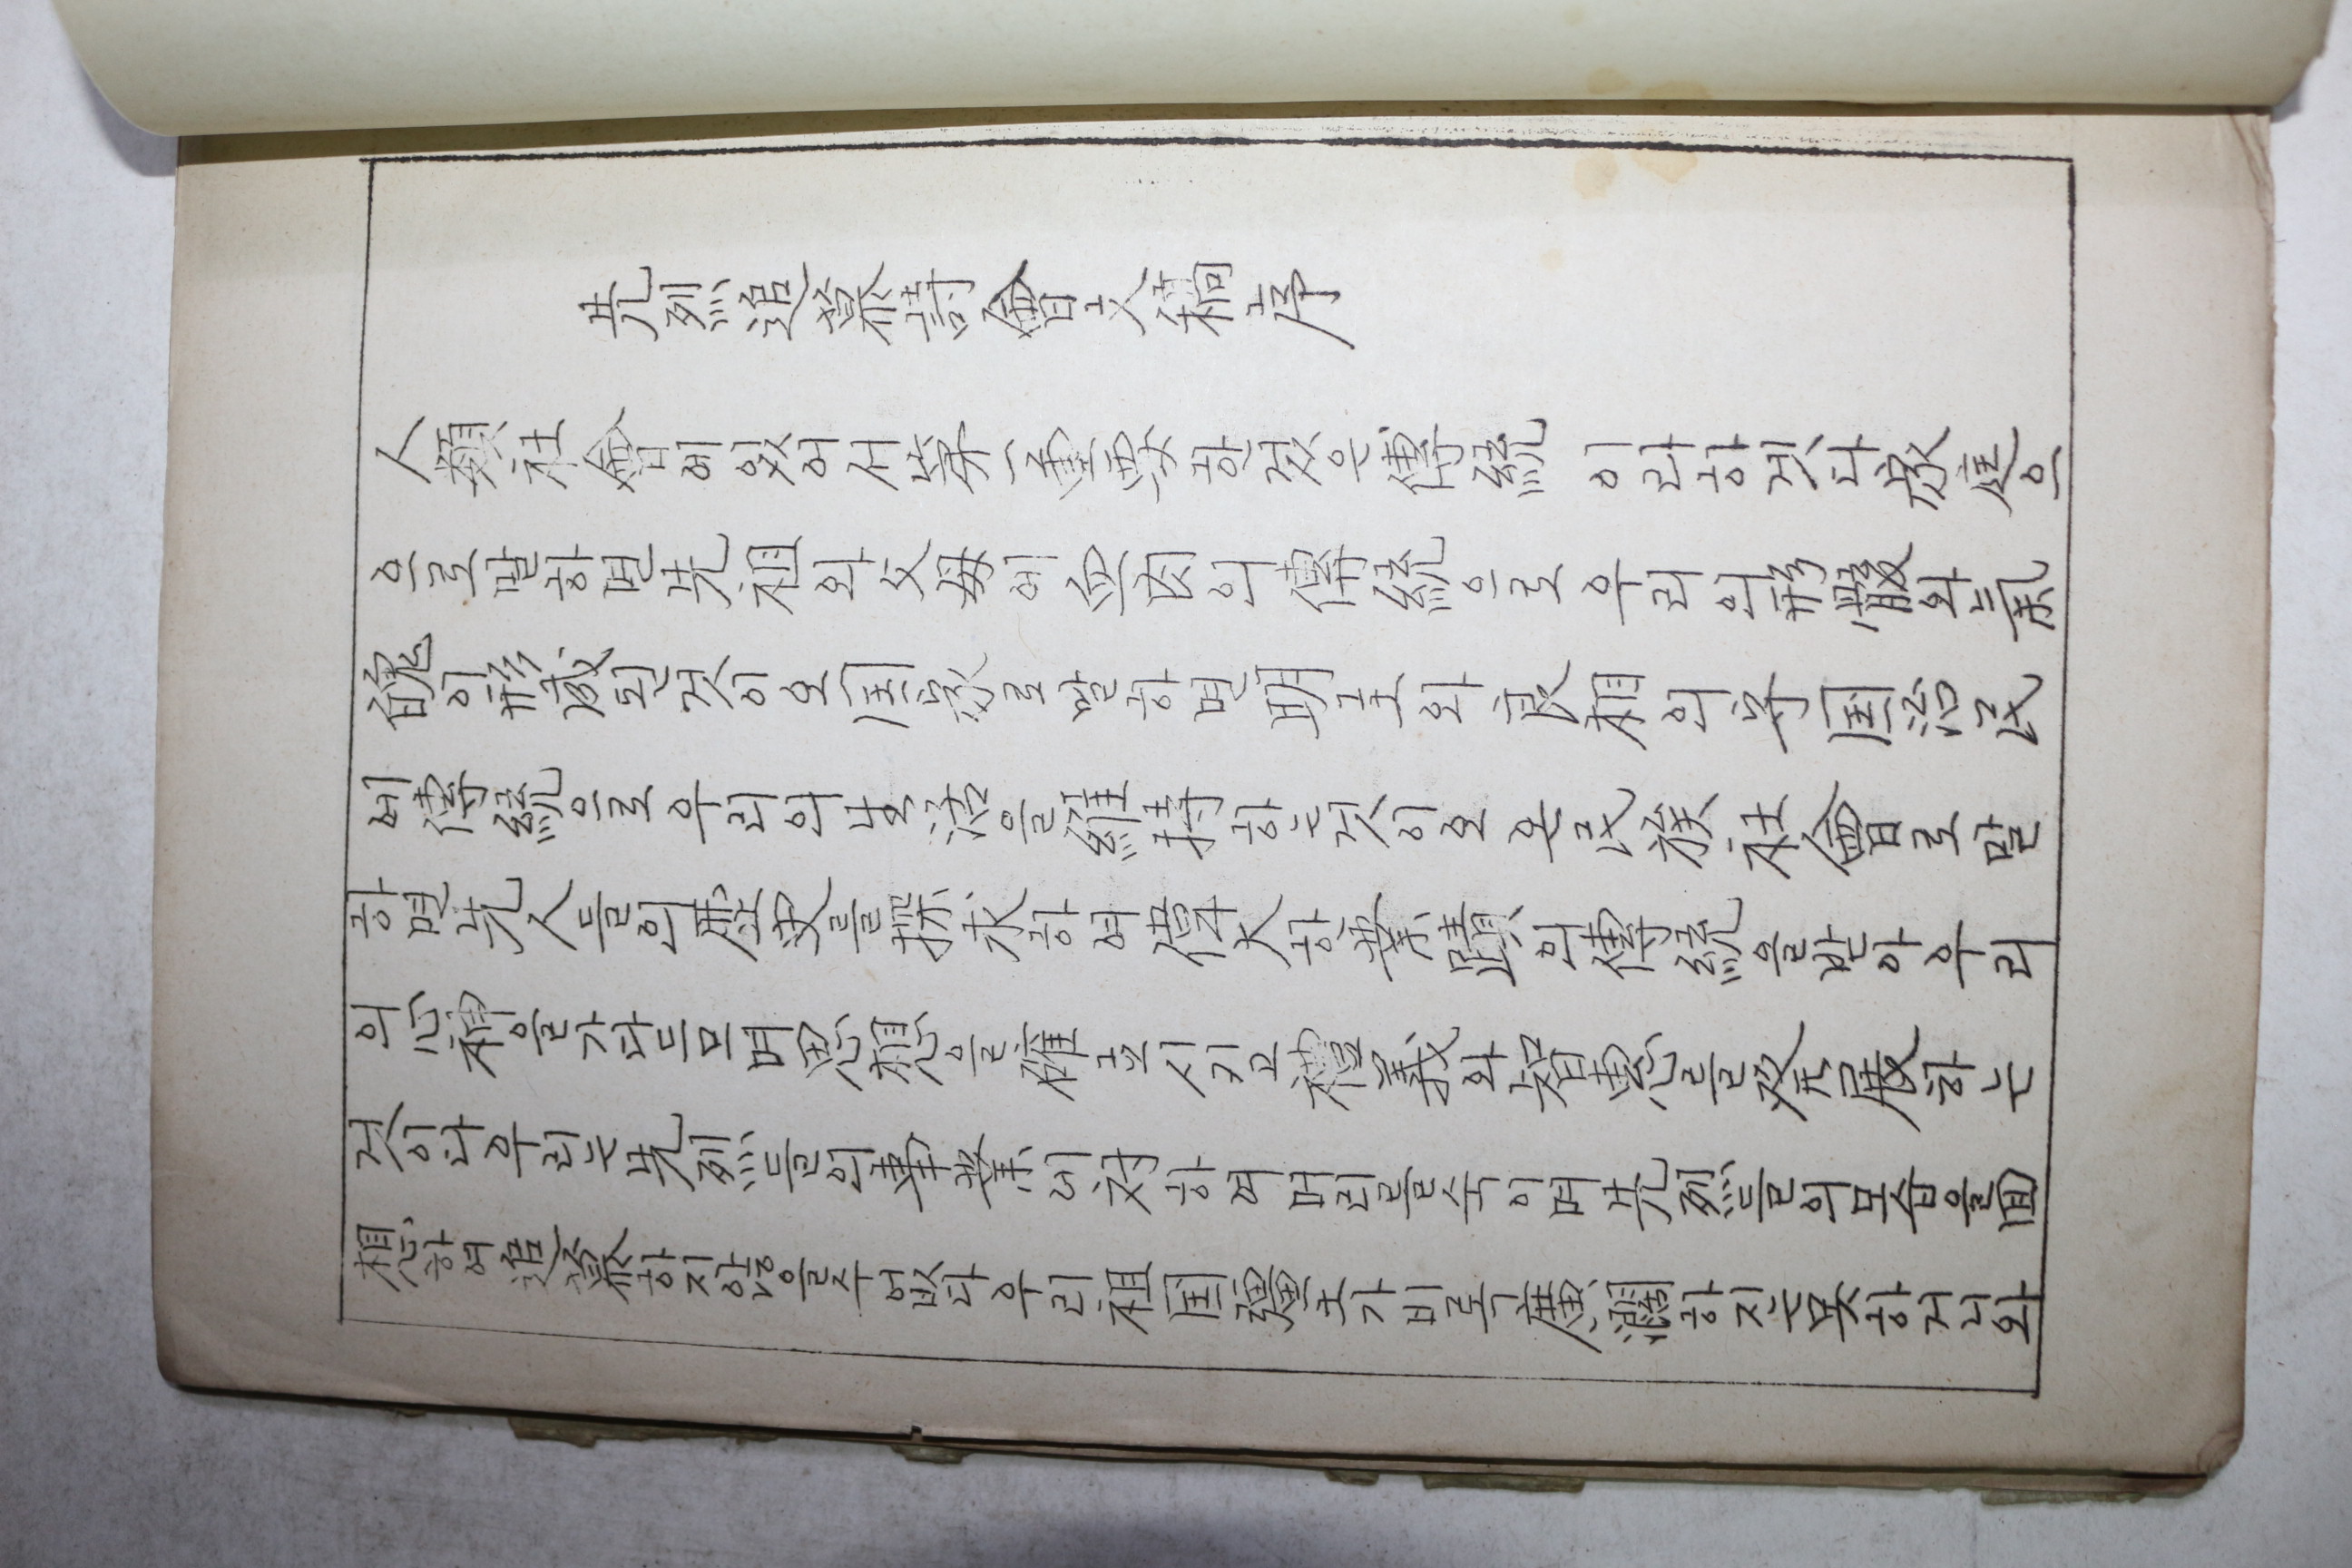 先烈追慕詩會文稿序
人類社會에있어서第一重要한것은傳統이라하겟다家庭으
으로말하면先祖와父母에血肉의傳統으로우리의形骸와氣
魄이形成된것이오国家로말하면明主와良相의守国治民
에傳統으로우리의生活을維持하는것이오또民族社會로말
하면先人들의歷史를探求하여偉大한業蹟의傳統을받아우리
의心神을가다듬으며思想을確立시키고禮義와智惠를發展하는
것이다우리는先烈들의事業에対하여머리를숙이며先烈들의모습을回
想하여追慕하지않을수없다우리祖国疆土가비록廣濶하지는못하거니와